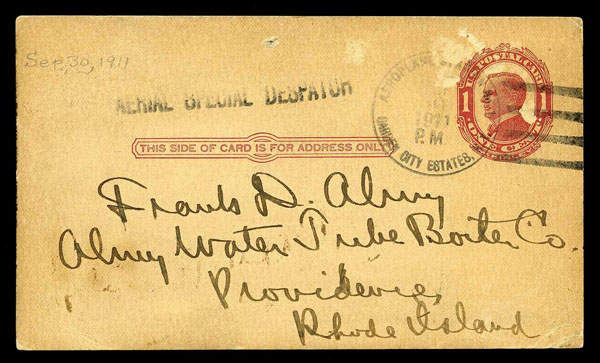 Sep, 30, 1911
AERIAL SPECIAL DESPATCH
AEROPLANE
1911
P.M
GARDEN CITY ESTATES,
U.S. POSTAL CARD
1 1
ONE CENT
THIS SIDE OF CARD IS FOR ADDRESS ONLY
Frank D. Almy
Almy Water Tube Boiler Co.
Providence,
Rhode Island